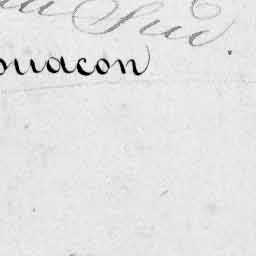 Sud.
ouacon